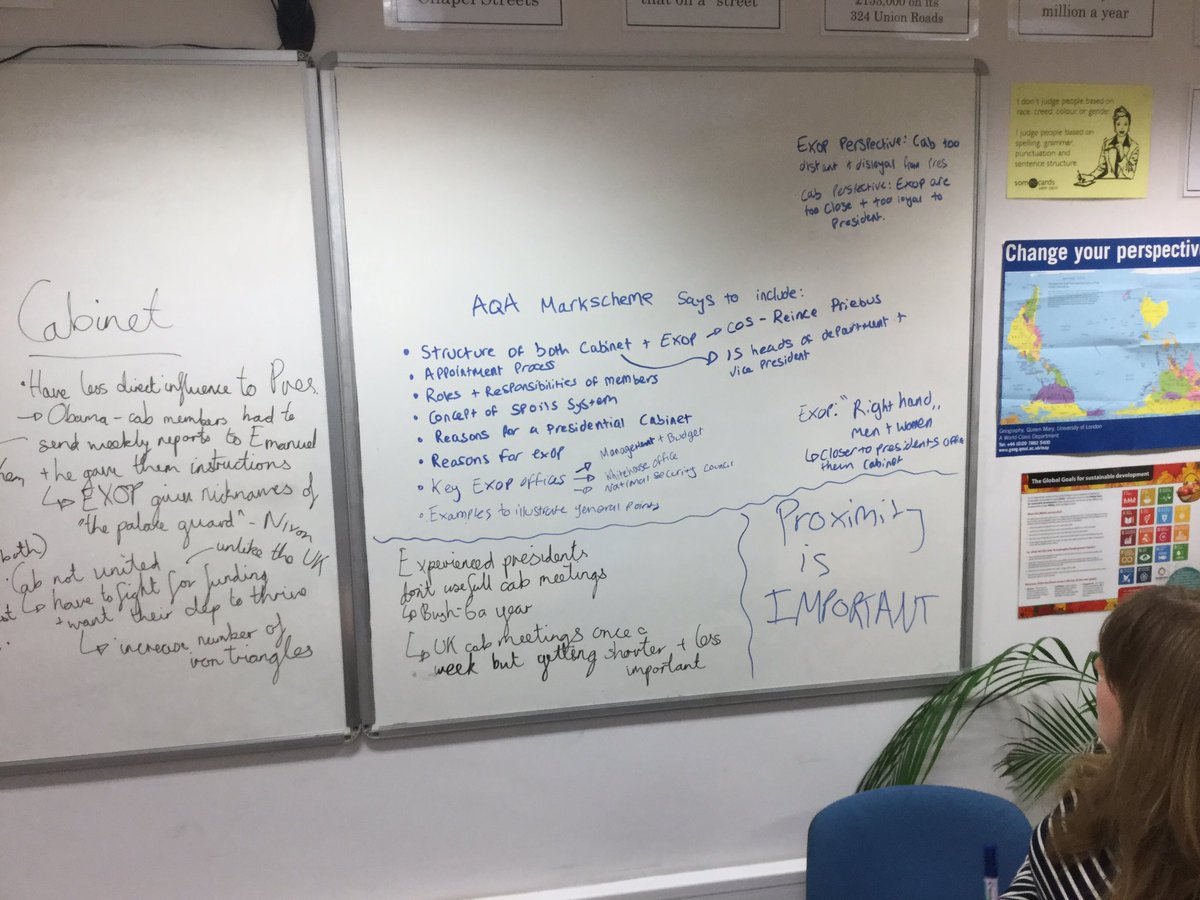 Chapel Streets
that on a "street
£193,000 on its
324 Union Roads
million a year
I don't judge people based on
race, creed, colour or gender.
I judge people based on
spelling, grammar,
punctuation and
sentence structure.
someecards
user card
Cabinet
• Have less direct influence to Pres.
→ Obama - cab members had to
send weekly reports to Emanuel
+ he gave them instructions
↳ EXOP given nicknames of
"the palace guard" - Nixon
both)
• Cab not united
unlike the UK
↳ have to fight for funding
+ want their dep to thrive
↳ increase number of
iron triangles
EXOP Perspective: Cab too
distant + disloyal from Pres
Cab Perspective: EXOP are
too close + too loyal to
President.
AQA Markscheme Says to include:
• Structure of both Cabinet + EXOP → COS - Reince Priebus
→ 15 heads of department +
vice President
• Appointment Process
• Roles + Responsibilities of members
• Concept of Spoils System
• Reasons for a Presidential Cabinet
• Reasons for EXOP
• Key EXOP offices → Management + Budget
→ Whitehouse Office
→ National Security Council
• Examples to illustrate general Points
EXOP: "Right hand,,
Men + Women
↳ Closer to presidents office
them cabinet
Experienced presidents
don't use full cab meetings
↳ Bush - 6 a year
↳ UK cab meetings once a
week but getting shorter + less
important
Proximity
is
IMPORTANT
Change your perspective
Geography, Queen Mary, University of London
A World-Class Department
Tel: +44 (0)20 7882 5400
www.geog.qmul.ac.uk/map
The Global Goals for sustainable development